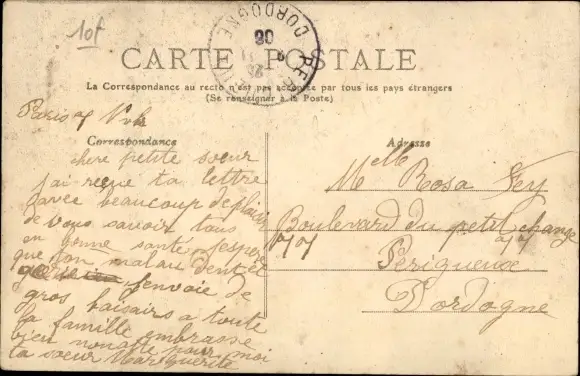 10f
CARTE POSTALE
La Correspondance au recto n'est pas acceptée par tous les pays étrangers
(Se renseigner à la Poste)
DORDOGNE
Paris
Correspondance
Adresse
chere petite soeur
j'ai reçue ta lettre
avec beaucoup de plaisir
de vous savoir tous
en bonne santé, j'espère
que ton mal au dent est
j'envoie de
gros baisairs a toute
la famille embrasse
bien pour moi
ta soeur Marguerite
Melle Rosa Fey
Boulevard du petit change
Périgueux
Dordogne